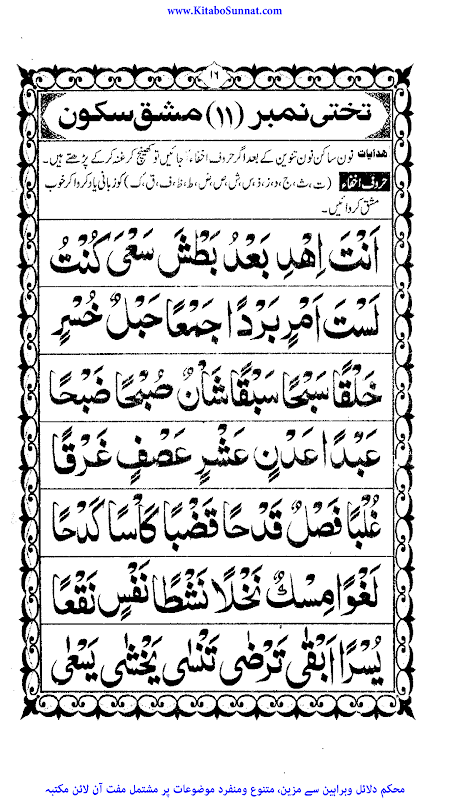 www.KitaboSunnat.com
١٦
تختی نمبر (۱۱) مشق سکون
ھدایات نون ساکن نون تنوین کے بعد اگر حروف اخفاء آ جائیں تو کھینچ کر غنہ کر کے پڑھتے ہیں۔
حروف اخفاء (ت، ث، ج، د، ذ، ز، س، ش، ص، ض، ط، ظ، ف، ق، ک) کو زبانی یاد کروا کر خوب
مشق کروائیں۔
اَنْتَ اِهْدِ بَعْدُ بَطْشَ سَعْىَ كُنْتُ
لَسْتَ اَمْرٍ بَرْدًا جَمْعًا حَبْلٌ خُسْرٍ
خَلْقًا سَبْحًا سَبْقًا شَاْنٌ صُبْحًا ضَبْحًا
عَبْدًا عَدْنٍ عَشْرٍ عَصْفٍ غَرْقًا
غُلْبًا فَصْلٌ قَدْحًا قَضْبًا كَاْسًا كَدْحًا
لَغْوًا مِسْكٌ نَخْلًا نَشْطًا نَفْسٍ نَقْعًا
يُسْرًا اَبْقٰى تَرْضٰى تَنْسٰى يَخْشٰى يَسْعٰى
محکم دلائل وبراہین سے مزین، متنوع ومنفرد موضوعات پر مشتمل مفت آن لائن مکتبہ